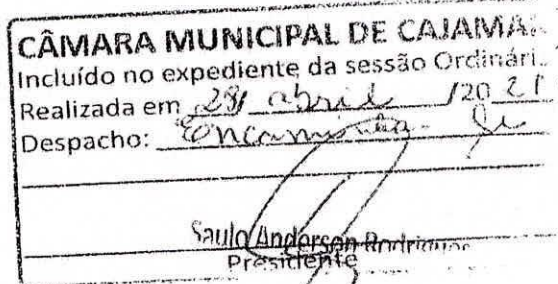 CÂMARA MUNICIPAL DE CAJAMA
Incluído no expediente da sessão Ordinári
Realizada em 28/ abril /20 21
Despacho: Encaminha-se
Saulo Anderson Rodrigues
Presidente